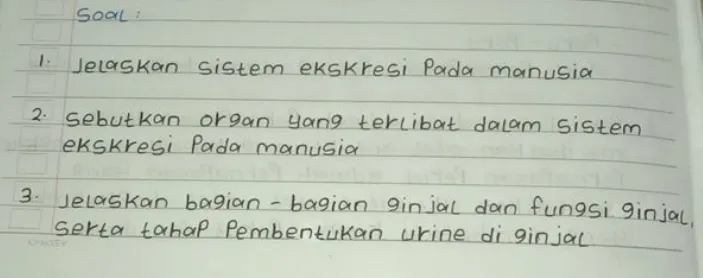 Soal :
1. Jelaskan sistem ekskresi Pada manusia
2. Sebutkan organ yang terlibat dalam sistem
ekskresi Pada manusia
3. Jelaskan bagian - bagian ginjal dan fungsi ginjal,
serta tahap Pembentukan urine di ginjal